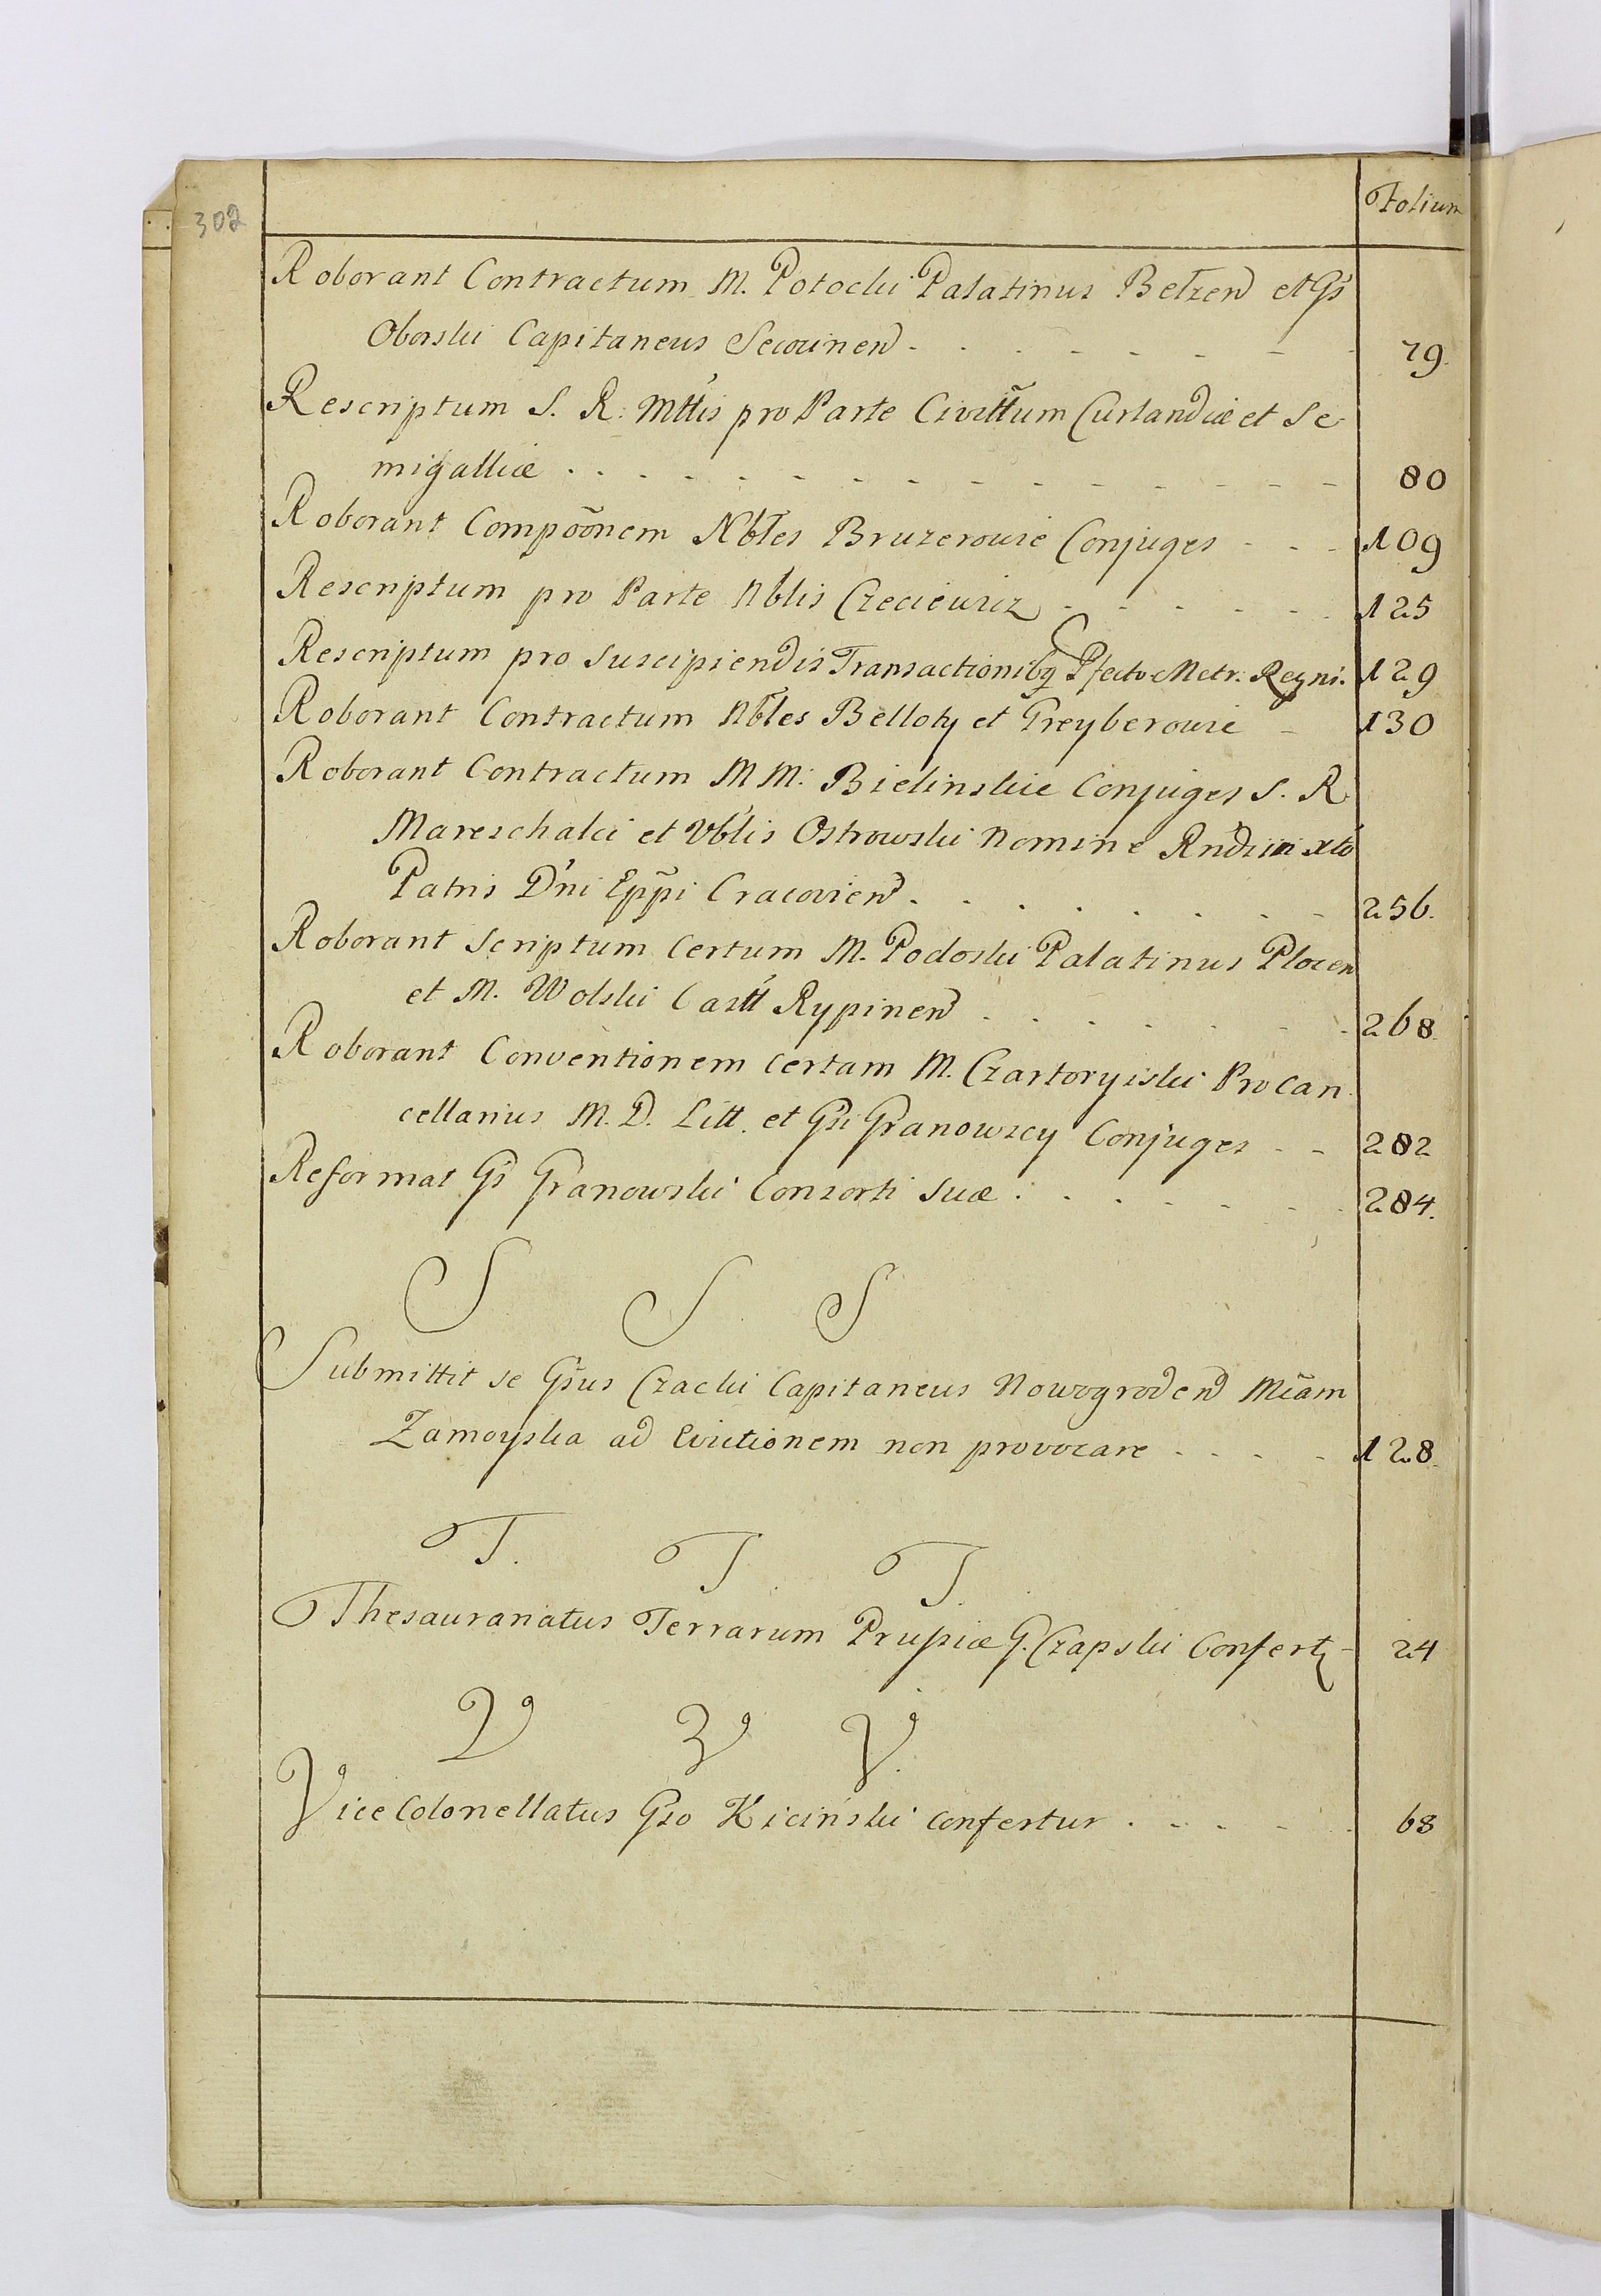 302
Folium
Roborant Contractum M. Potocki Palatinus Belzen et Gs
Oborski Capitaneus Secovinen - - - - - - - - 79.
Rescriptum S. R. Mttis pro Parte Civittum Curlandiæ et Se
migalliæ - - - - - - - - - - - - - - 80
Roborant Compõõnem Nbles Bruzerowie Conjuges - - - 109
Rescriptum pro Parte Nblis Czeciewicz - - - - - 125
Rescriptum pro suscipiendis Transactionibq Pfecto Metr. Regni. 129
Roborant Contractum Nbles Belloty et Freyberowie - 130
Roborant Contractum MM. Bielinskie Conjuges S. R.
Mareschalci et Vblis Ostrowski Nomine Rndimi xto
Patris Dni Eppi Cracovien - - - - - - - - 256.
Roborant Scriptum Certum M. Podoski Palatinus Plocen
et M. Wolski Castt Rypinen - - - - - - - 268.
Roborant Conventionem Certam M. Czartoryiski Procan
cellarius M. D. Litt. et Gsi Granowscy Conjuges - - 282
Reformat Gs Granowski Consorti suæ - - - - - - 284.
S S S
Submittit se Gsus Czacki Capitaneus Nowogroden Mcam
Zamoyska ad Evictionem non provocare - - - - 128.
T. T. T.
Thesaurariatus Terrarum Prussiæ G. Czapski Confert - 24
V V V.
Vice Colonellatus Gso Kiciński confertur - - - - - 68